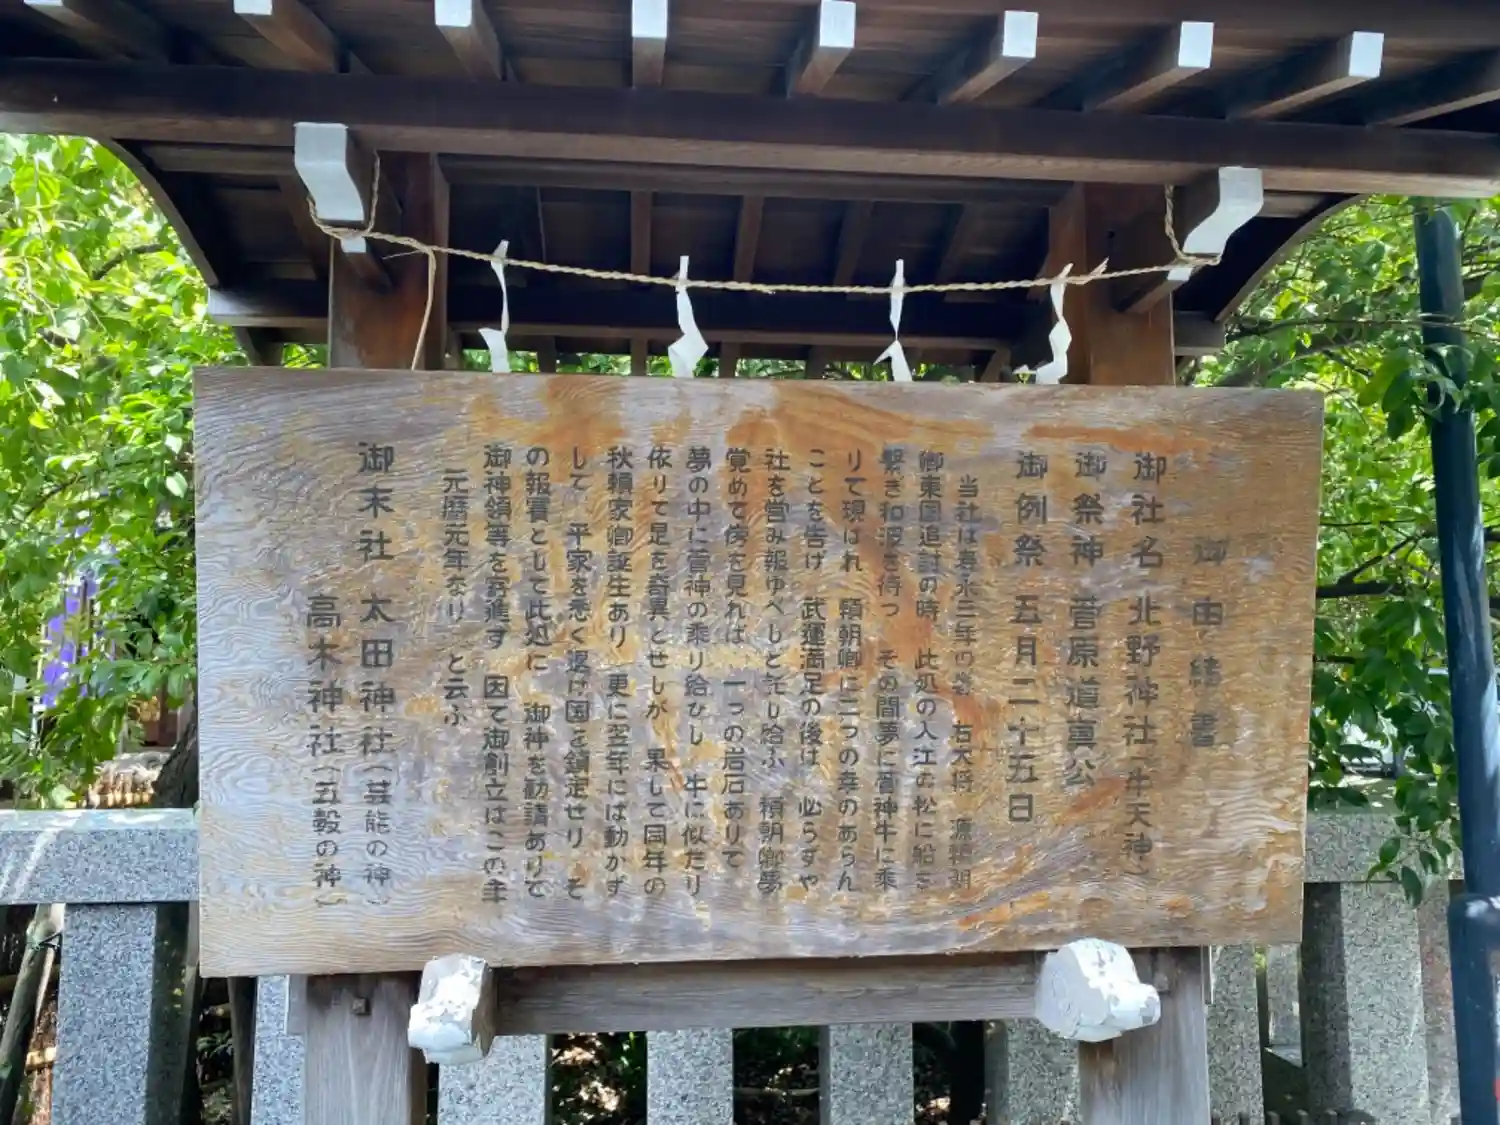 御由緒書
御社名 北野神社（牛天神）
御祭神 菅原道真公
御例祭 五月二十五日
当社は寿永三年の春 右大将 源頼朝
卿東国追討の時 此処の入江の松に船を
繋ぎ和波を待つ その間夢に菅神牛に乗
りて現はれ 頼朝卿に二つの幸のあらん
ことを告げ 武運満足の後は 必らずや
社を営み報ゆべしと託し給ふ 頼朝卿夢
覚めて傍を見れば 一つの岩石ありて
夢の中に菅神の乗り給ひし 牛に似たり
依りて是を奇異とせしが 果して同年の
秋頼家卿誕生あり 更に翌年には動かず
して 平家を悉く退け国を鎮定せり そ
の報賽として此処に 御神を勧請ありて
御神領等を寄進す 因て御創立はこの主
元暦元年なり と云ふ
御末社 太田神社（芸能の神）
高木神社（五穀の神）